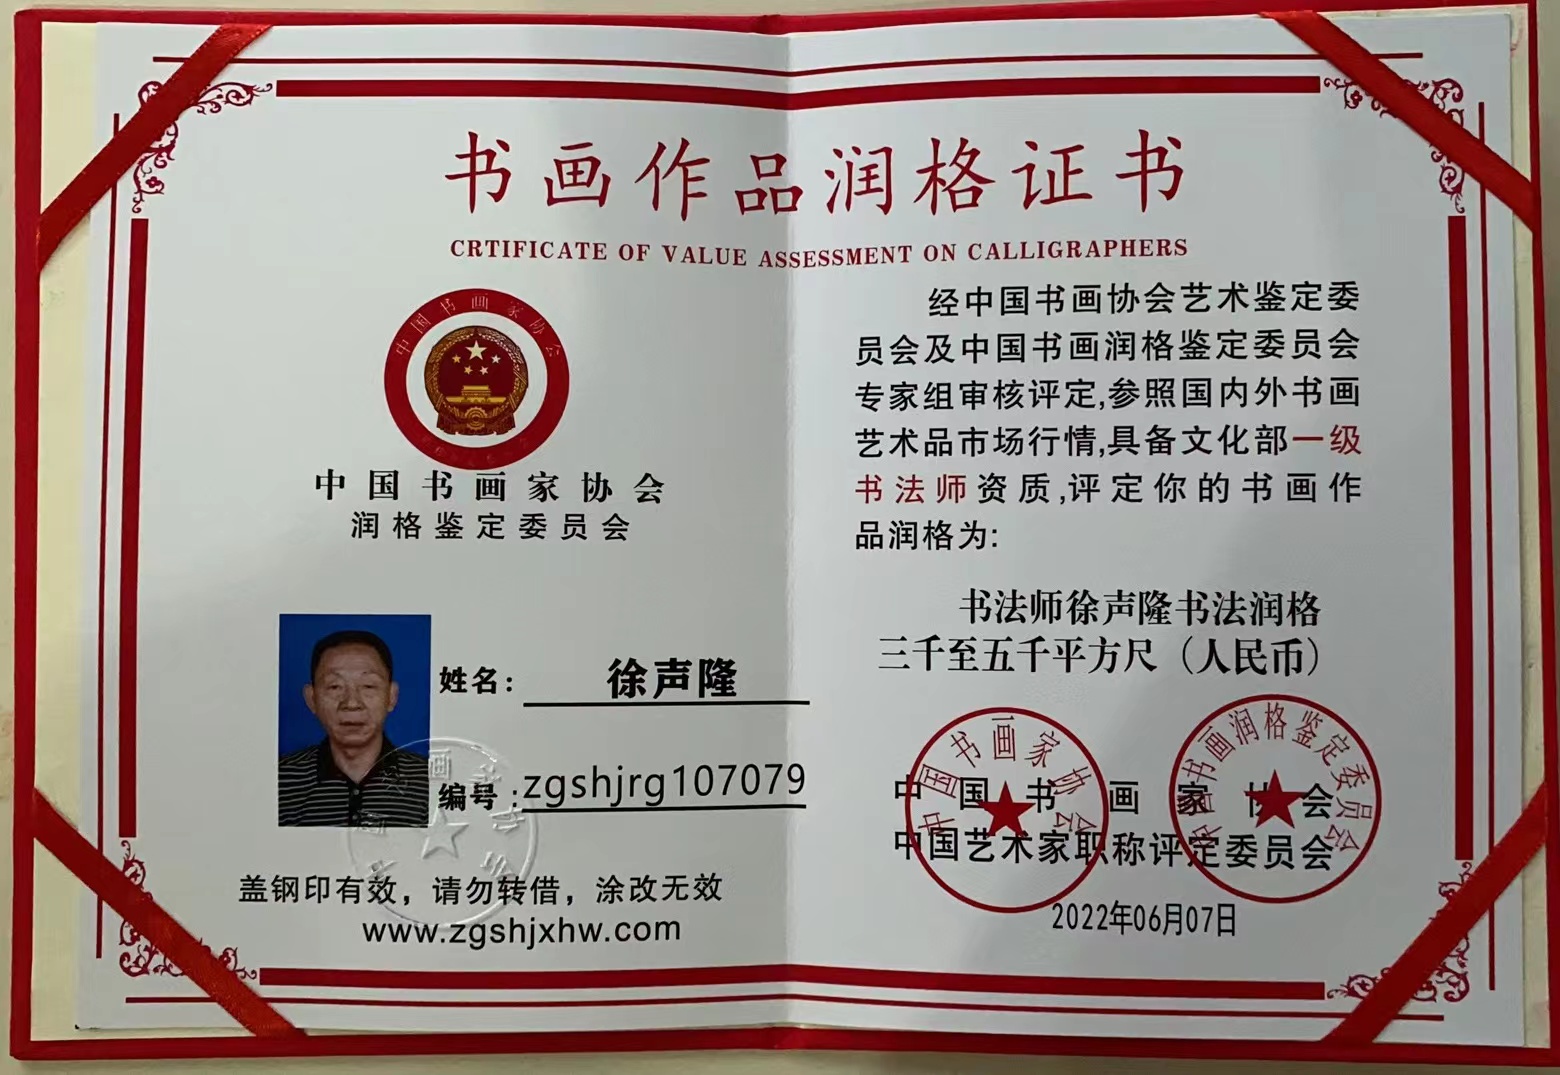 书画作品润格证书
CRTIFICATE OF VALUE ASSESSMENT ON CALLIGRAPHERS
中国书画家协会
中国书画家协会
润格鉴定委员会
姓名：
徐声隆
编号：
zgshjrg107079
盖钢印有效，请勿转借，涂改无效
www.zgshjxhw.com
经中国书画协会艺术鉴定委
员会及中国书画润格鉴定委员会
专家组审核评定,参照国内外书画
艺术品市场行情,具备文化部一级
书法师资质,评定你的书画作
品润格为:
书法师徐声隆书法润格
三千至五千平方尺（人民币）
中国书画家协会
中国艺术家职称评定委员会
2022年06月07日
中国书画家协会
中国书画润格鉴定委员会